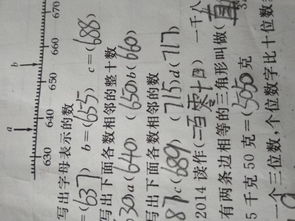 a b
630 640 650 660 670
写出字母表示的数
=(637) b=(655) c=(688)
写出下面各数相邻的整十数
30a(640) (650)b(660)
写出下面各数相邻的数
87)c(689) (715)d(717)
2014 读作( 一千八
有两条边相等的三角形叫做(
5 千克 50 克=( )克
一个三位数,个位数字比十位数